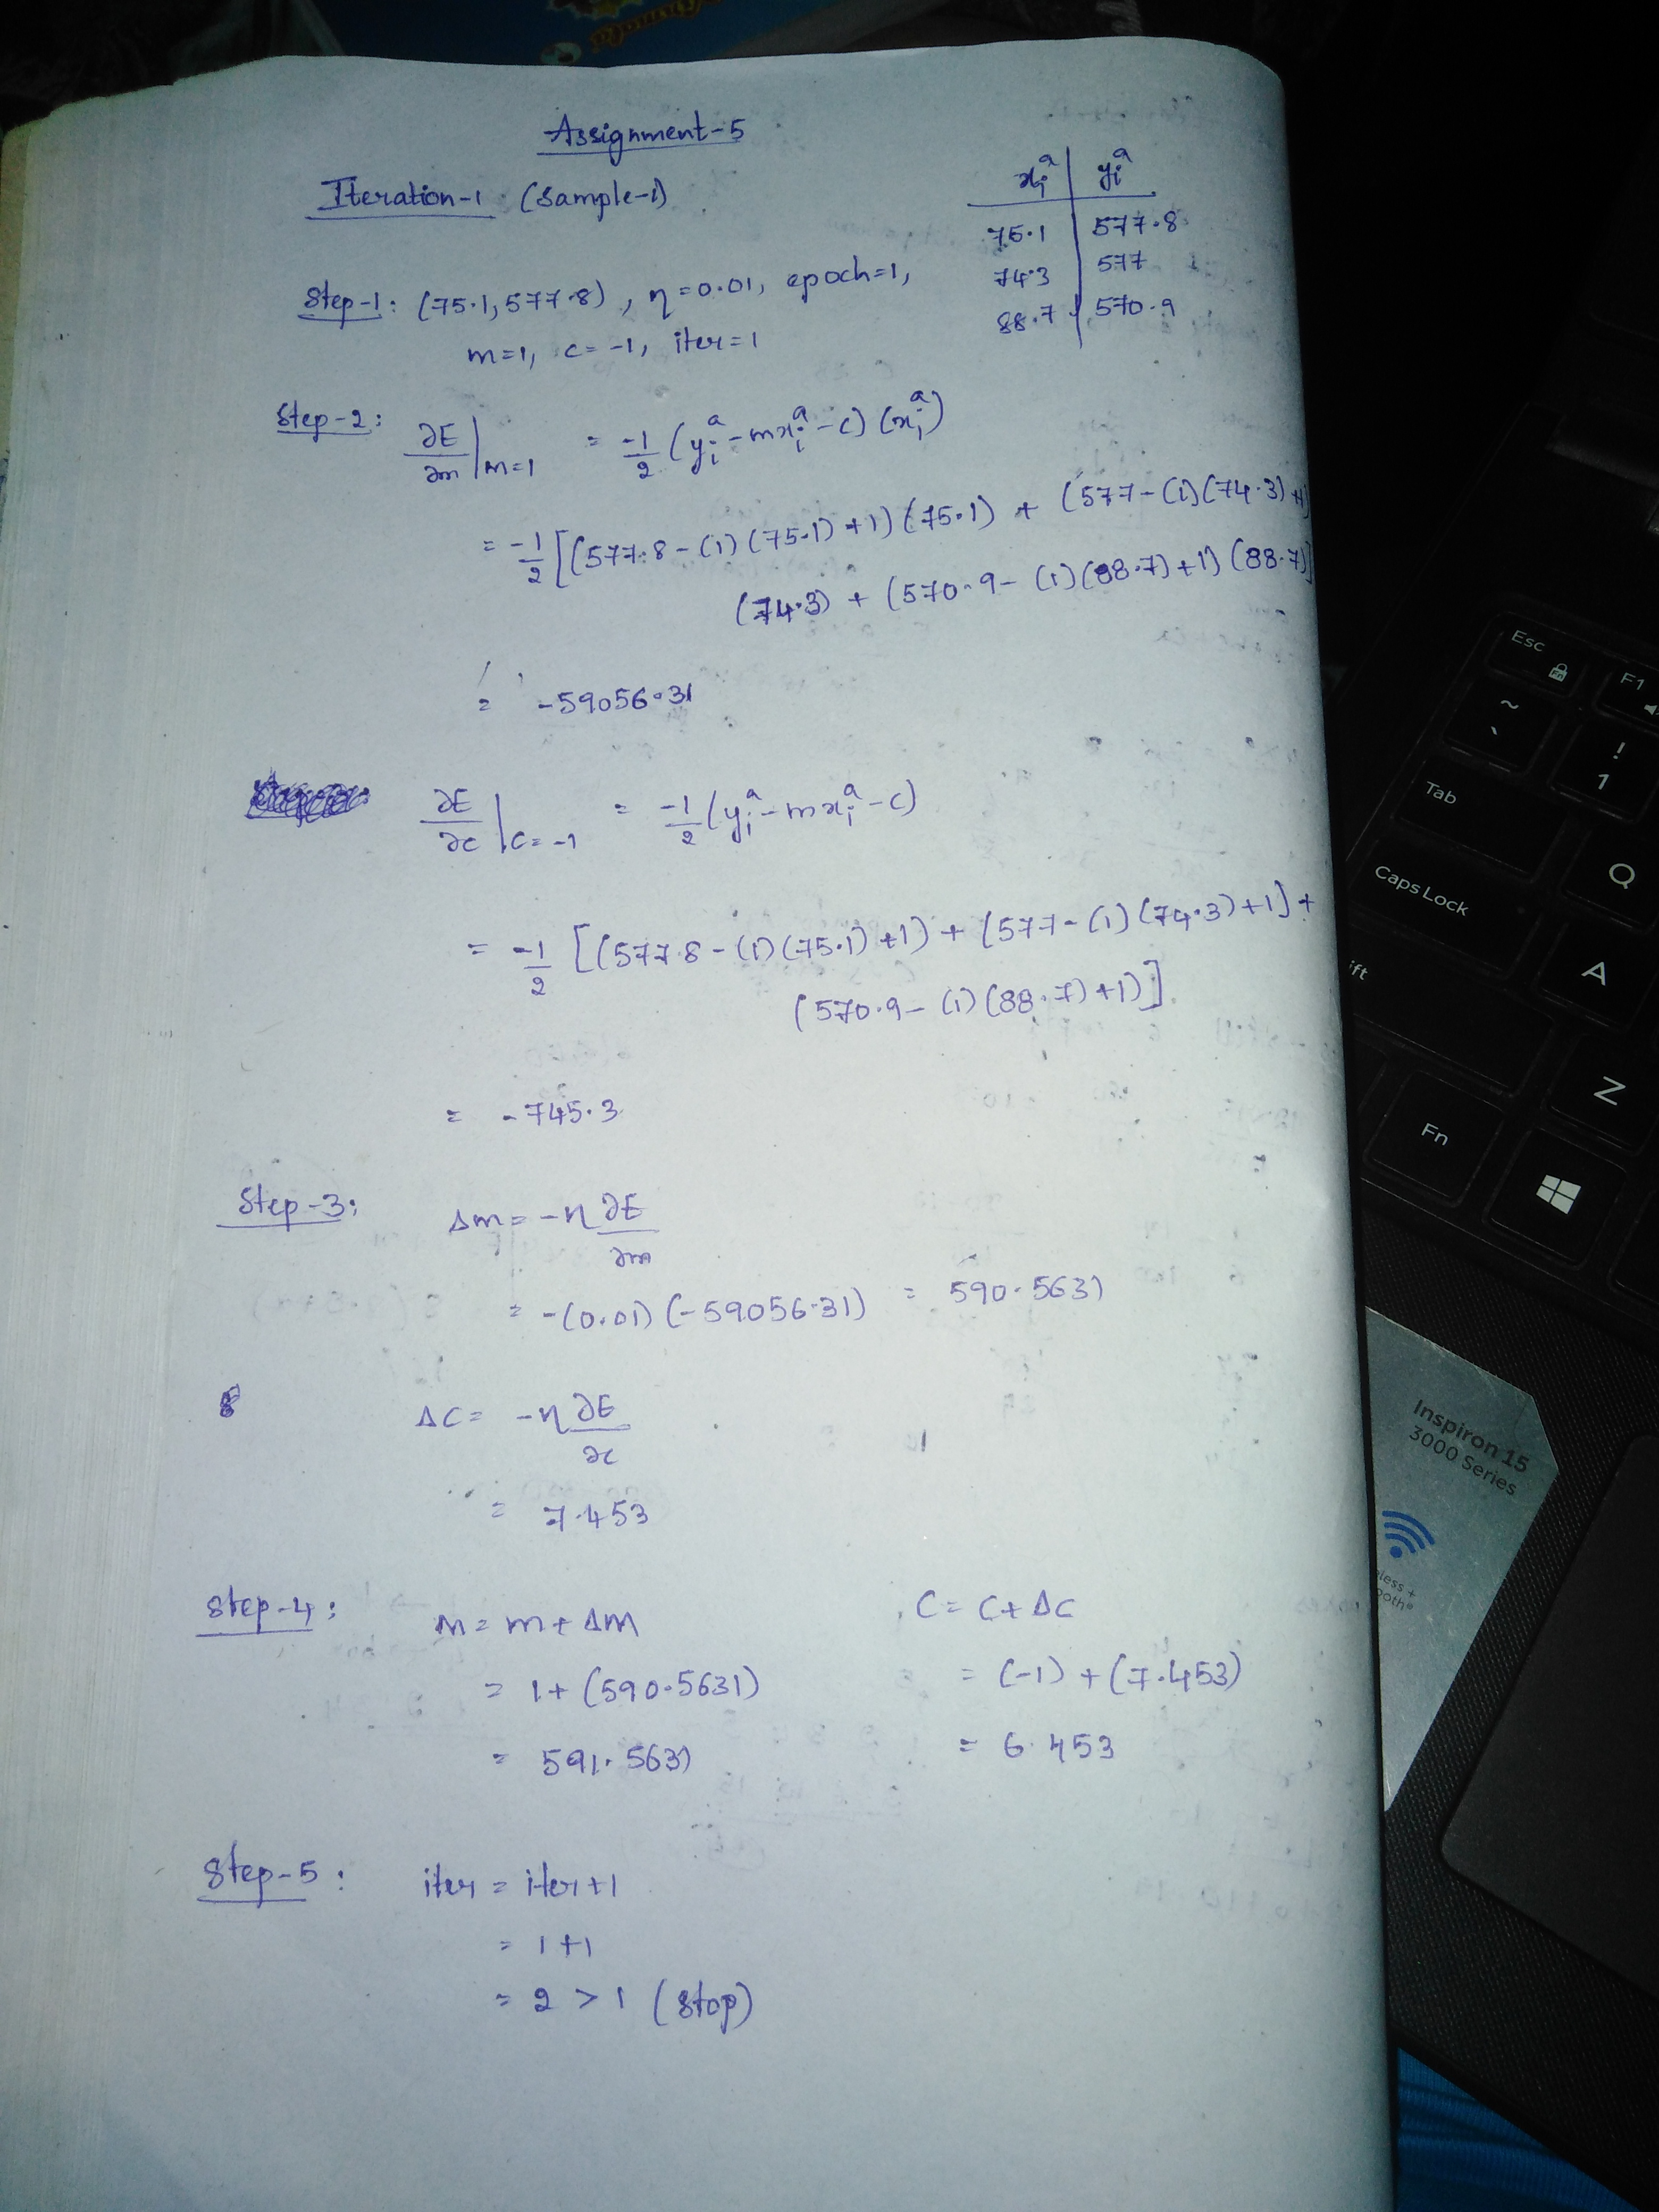 Assignment-5
Iteration-1 (Sample-1)
xᵢᵃ | yᵢᵃ
75.1 | 577.8
74.3 | 577
88.7 | 570.9
Step-1: (75.1, 577.8), η=0.01, epoch=1,
m=1, c=-1, iter=1
Step-2: ∂E/∂m |m=1 = -1/2 (yᵢᵃ - mxᵢᵃ - c) (xᵢᵃ)
= -1/2 [(577.8 - (1)(75.1)+1) (75.1) + (577 - (1)(74.3)+1
(74.3) + (570.9 - (1)(88.7)+1) (88.7)]
= -59056.31
∂E/∂c |c=-1 = -1/2 (yᵢᵃ - mxᵢᵃ - c)
= -1/2 [(577.8 - (1)(75.1)+1) + (577 - (1)(74.3)+1] +
(570.9 - (1)(88.7)+1)]
= -745.3
Step-3: Δm = -η ∂E/∂m
= -(0.01) (-59056.31) = 590.5631
Δc = -η ∂E/∂c
= 7.453
Step-4: m = m + Δm
= 1 + (590.5631)
= 591.5631
c = c + Δc
= (-1) + (7.453)
= 6.453
Step-5: iter = iter+1
= 1+1
= 2 > 1 (stop)
Esc
F1
~
`
!
1
Tab
Q
Caps Lock
A
ift
Z
Fn
Inspiron 15
3000 Series
eless +
ooth®